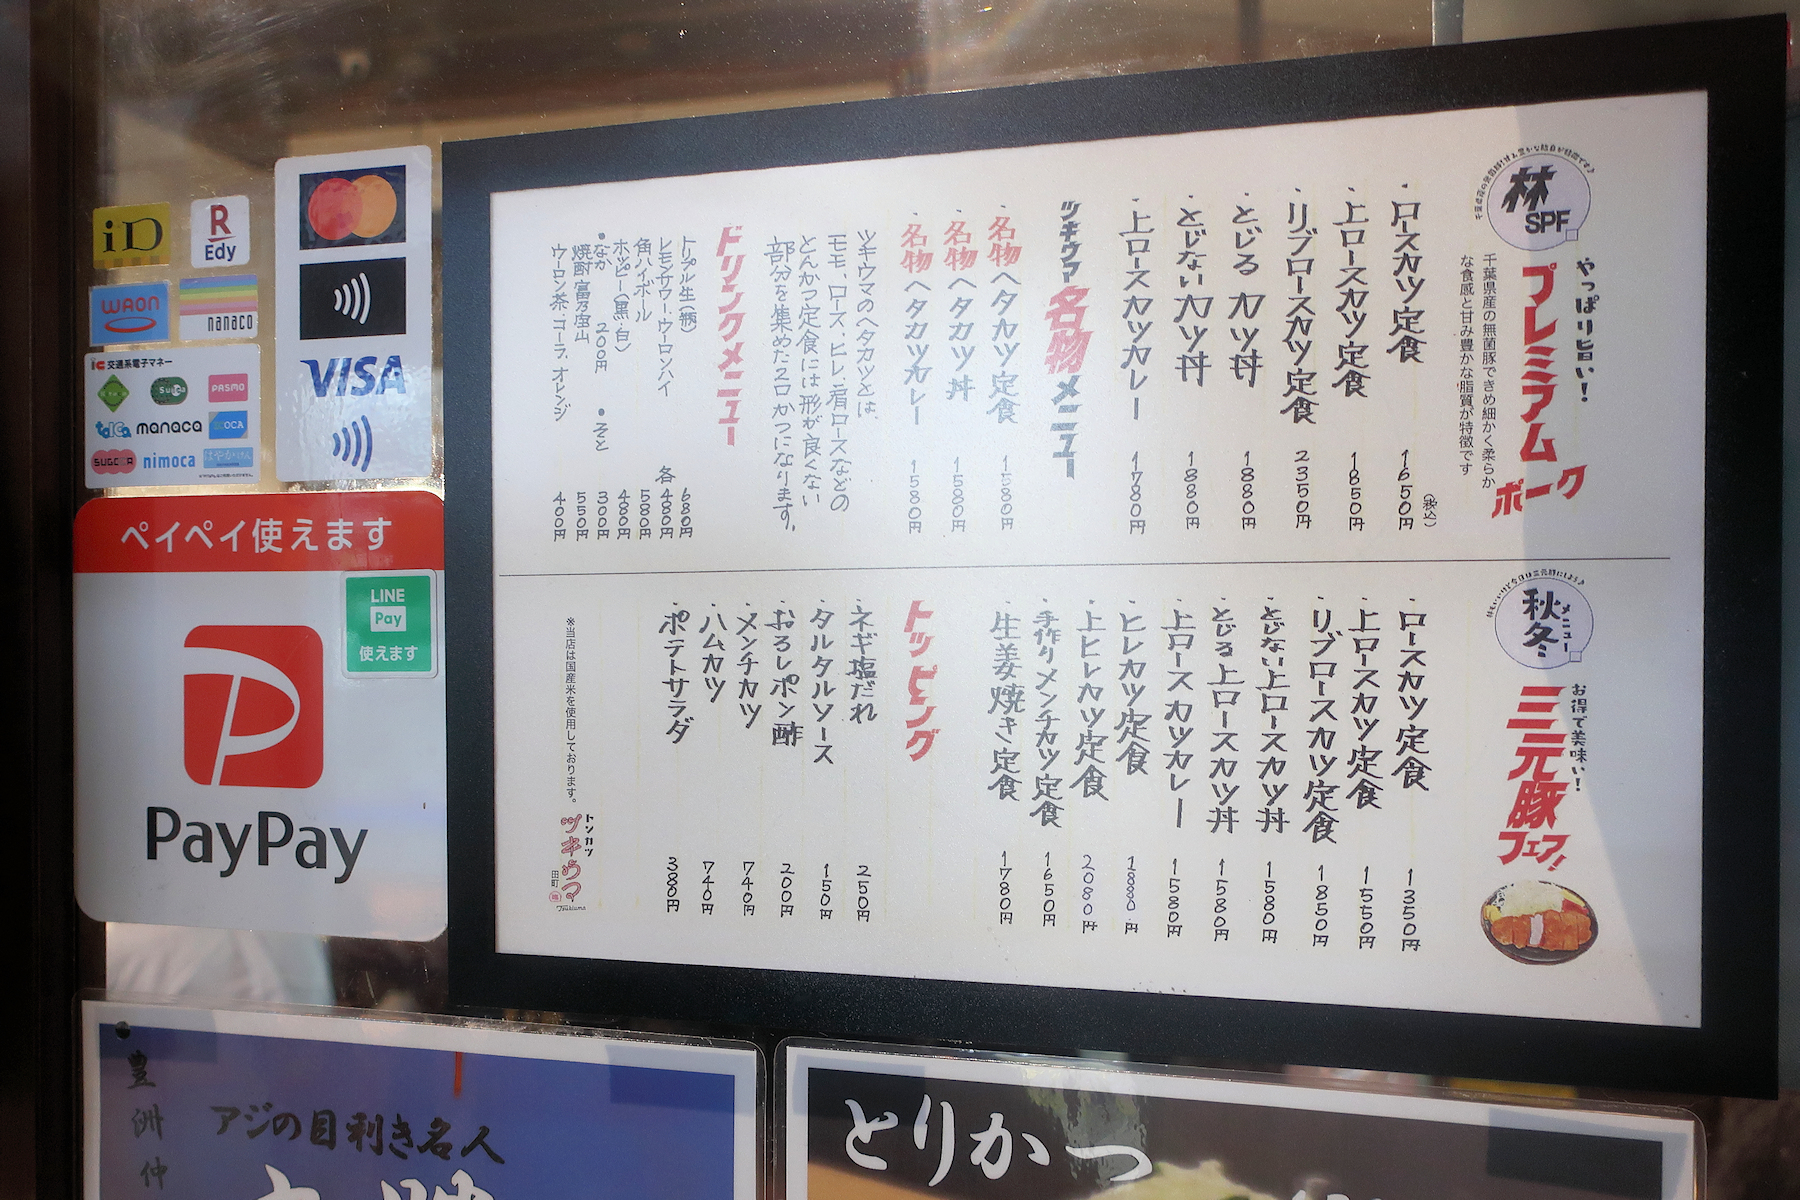 iD
R
Edy
WAON
nanaco
交通系電子マネー
Suica
PASMO
TOICA
manaca
ICOCA
SUGOCA
nimoca
はやかけん
VISA
ペイペイ使えます
LINE
Pay
使えます
PayPay
林
SPF
やっぱり旨い！
プレミアム
ポーク
千葉県産の無菌豚できめ細かく柔らか
な食感と甘み豊かな脂質が特徴です
・ロースカツ定食 1650円 (税込)
・上ロースカツ定食 1850円
・リブロースカツ定食 2350円
・とじる カツ丼 1880円
・とじない カツ丼 1880円
・上ロースカツカレー 1780円
ツキウマ名物メニュー
・名物ヘタカツ定食 1580円
・名物ヘタカツ丼 1580円
・名物ヘタカツカレー 1580円
ツキウマのヘタカツとは、
モモ、ロース、ヒレ、肩ロースなどの
とんかつ定食には形が良くない
部分を集めた一口かつになります。
ドリンクメニュー
トリプル生(瓶) 680円
レモンサワー・ウーロンハイ 各480円
角ハイボール 580円
ホッピー(黒・白) 480円
・なか 200円 ・そと 300円
焼酎 富乃宝山 550円
ウーロン茶・コーラ、オレンジ 400円
秋冬
メニュー
お得で美味い！
三元豚
フェア！
・ロースカツ定食 1350円
・上ロースカツ定食 1550円
・リブロースカツ定食 1850円
・とじない上ロースカツ丼 1580円
・とじる上ロースカツ丼 1580円
・上ロースカツカレー 1580円
・ヒレカツ定食 1880円
・上ヒレカツ定食 2080円
・手作りメンチカツ定食 1650円
・生姜焼き定食 1780円
トッピング
・ネギ塩だれ 250円
・タルタルソース 150円
・おろしポン酢 200円
・メンチカツ 740円
・ハムカツ 740円
・ポテトサラダ 380円
※当店は国産米を使用しております。
トンカツ
ツキウマ
田町
Tsukiuma
豊洲仲
アジの目利き名人
とりかつ